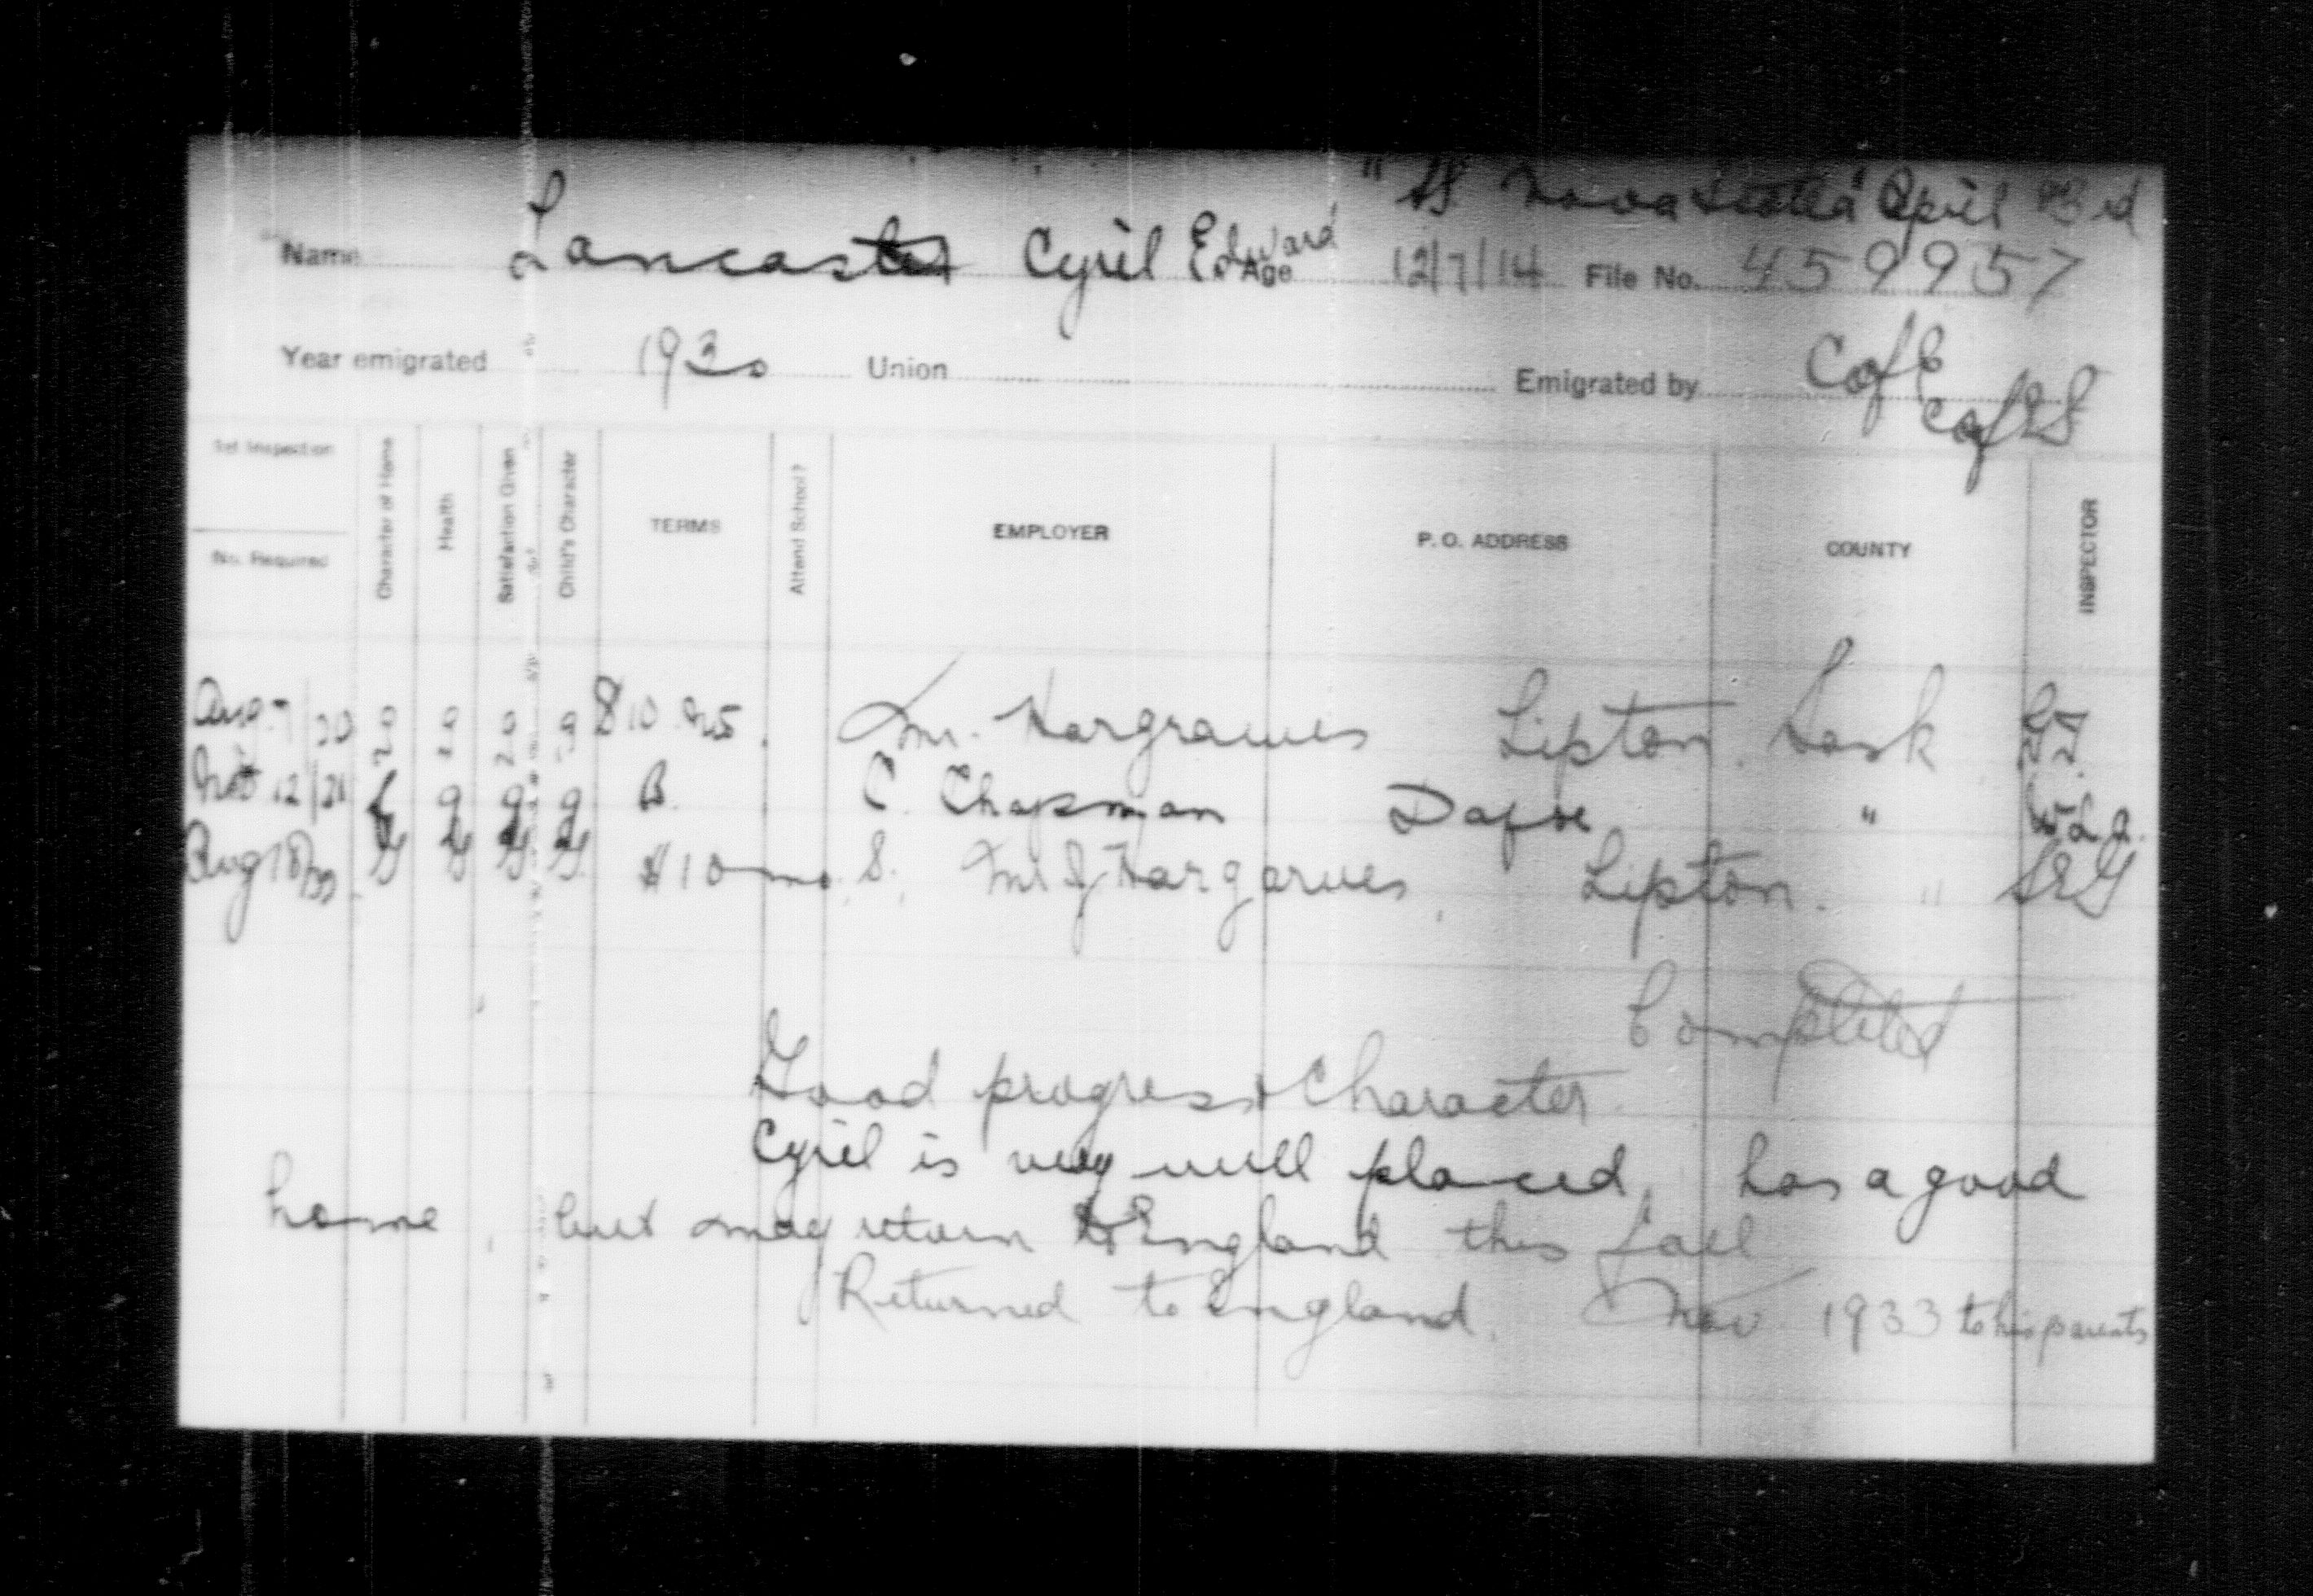 "SS. Nova Scotia" April
Name Lancaster Cyril Edward Age 12/7/14 File No. 459957
Year emigrated 1930 Union Emigrated by C of E
C of E S
1st Inspection
No. Required
Character of Home
Health
Satisfaction Given
Child's Character
TERMS
Attend School?
EMPLOYER
P. O. ADDRESS
COUNTY
INSPECTOR
Aug. 7/30 g g g g $10 Mr. Hargraves Lipton Sask
12/31 f g g g B. C. Chapman Dafoe "
Aug 18/33 G G G G $10 mo. S. Mr J Hargarves Lipton. " SEG
Completed
Good progress & Character
Cyril is very well placed, has a good
home, but may return to England this fall
Returned to England. Nov 1933 to his parents